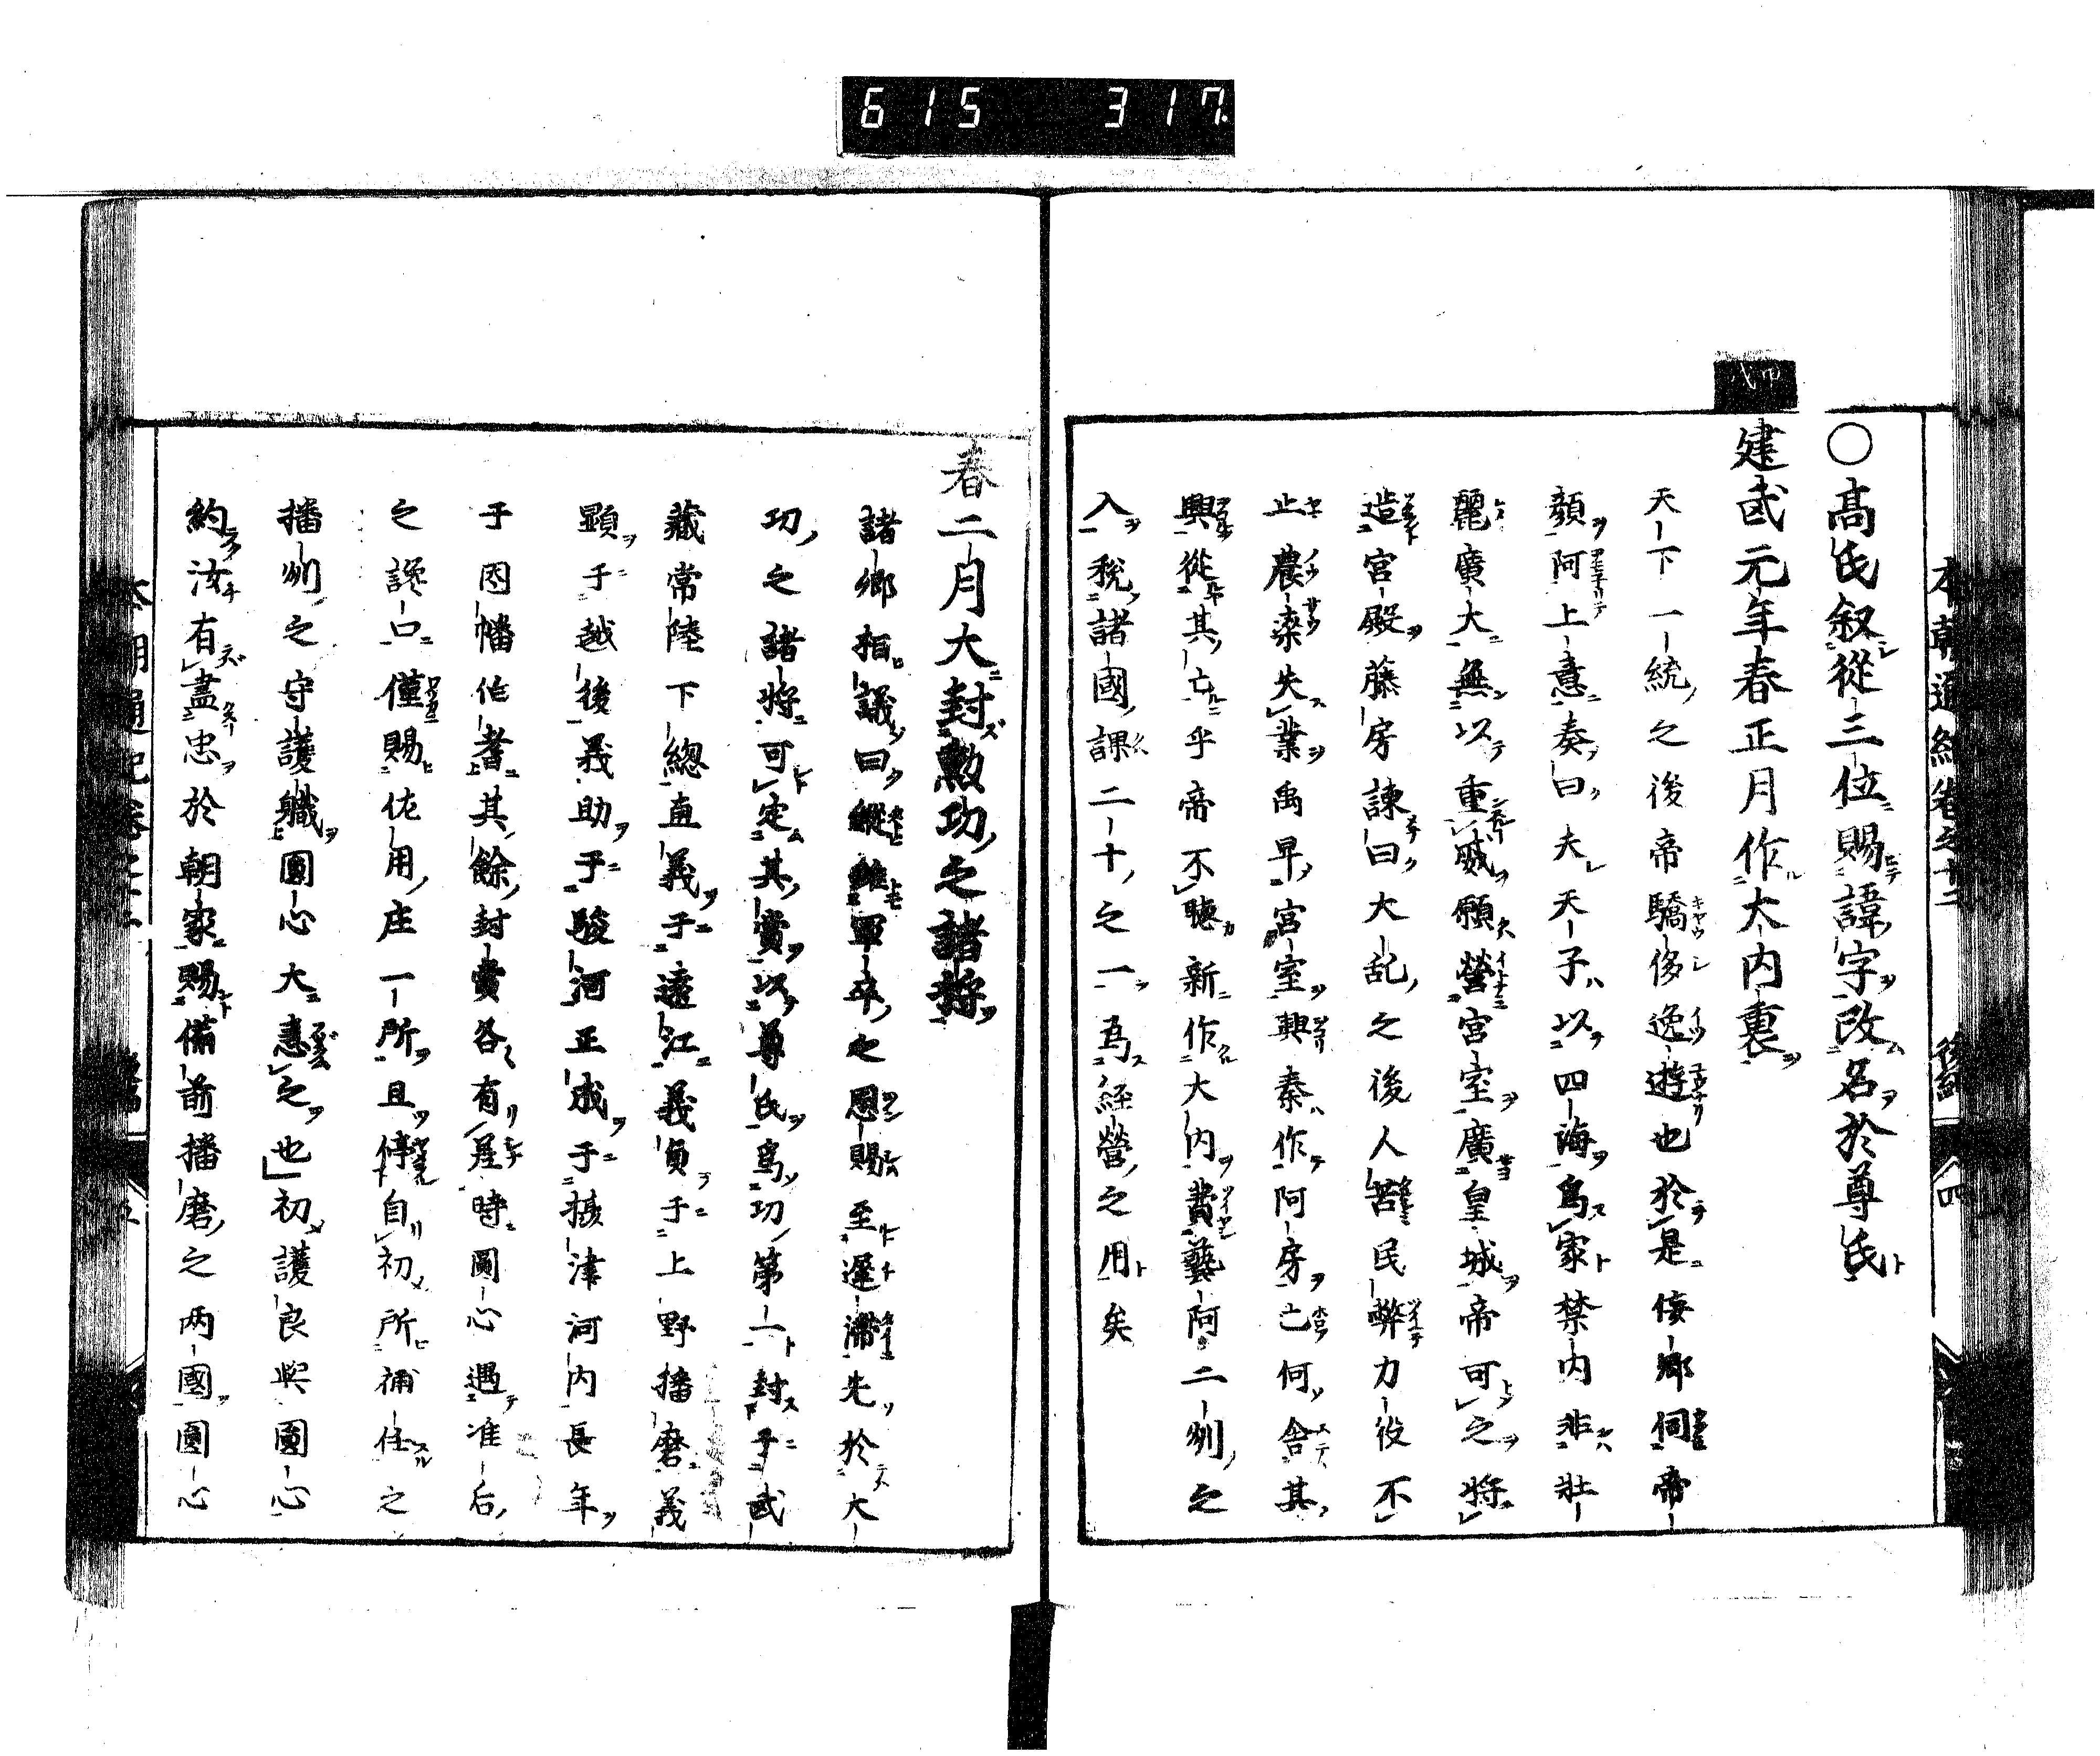 615 317
本朝通紀卷之十二 後編 四
○髙氏叙從三位賜諱字改名於尊氏
建武元年春正月作大内裏
天下一統之後帝驕侈逸遊也於是倭郷伺帝
顔阿上意奏曰夫天子以四海爲家禁内非壯
麗廣大無以重威願營宮室廣皇城帝可之將
造宮殿藤房諫曰大乱之後人苦民弊力役不
止農桒失業禹早宮室興秦作阿房亡何舍其
興從其亡乎帝不聴新作大内費藝阿二州之
入税諸國課二十之一爲經營之用矣
春二月大封勲功之諸將
諸郷相議曰縱雖軍卒之恩賜至遲滯先於大
功之諸將可定其賞以尊氏爲功第一封于武
藏常陸下總直義于遠江義貞于上野播磨義
顯于越後義助于駿河正成于摂津河内長年
于因幡伯耆其餘封賞各有差時圓心遇准后
之讒口僅賜佐用庄一所且停自初所補任之
播州之守護職圓心大恚之也初護良與圓心
約汝有盡忠於朝家賜備前播磨之両國圓心